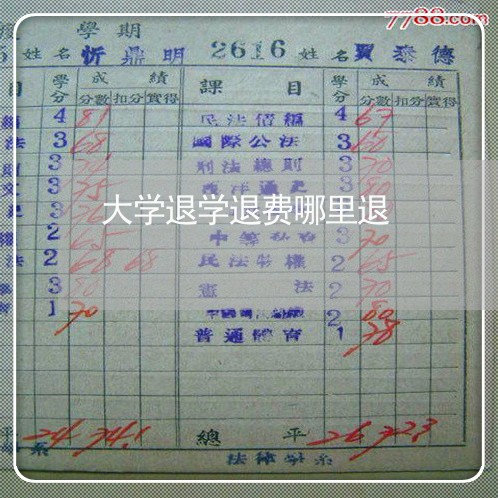 7788.com
學期
姓名 忻鼎明 2616 姓名 賈泰德
目 學分 成績 課目 學分 成績
分數 扣分 實得 分數 扣分 實得
4 81 民法債編 4 67
法 3 68 國際公法 3 60
3 刑法總則 3 70
3 75 西洋通史 3 80
3
大学退学退费哪里退
2 65 3 70
法 2 68 68 民法物權 2 65
3 80 憲法 2 70
1 70 2 80
普通體育 1 78
平 24 74.1 總平 26 72.3
系 法律學系